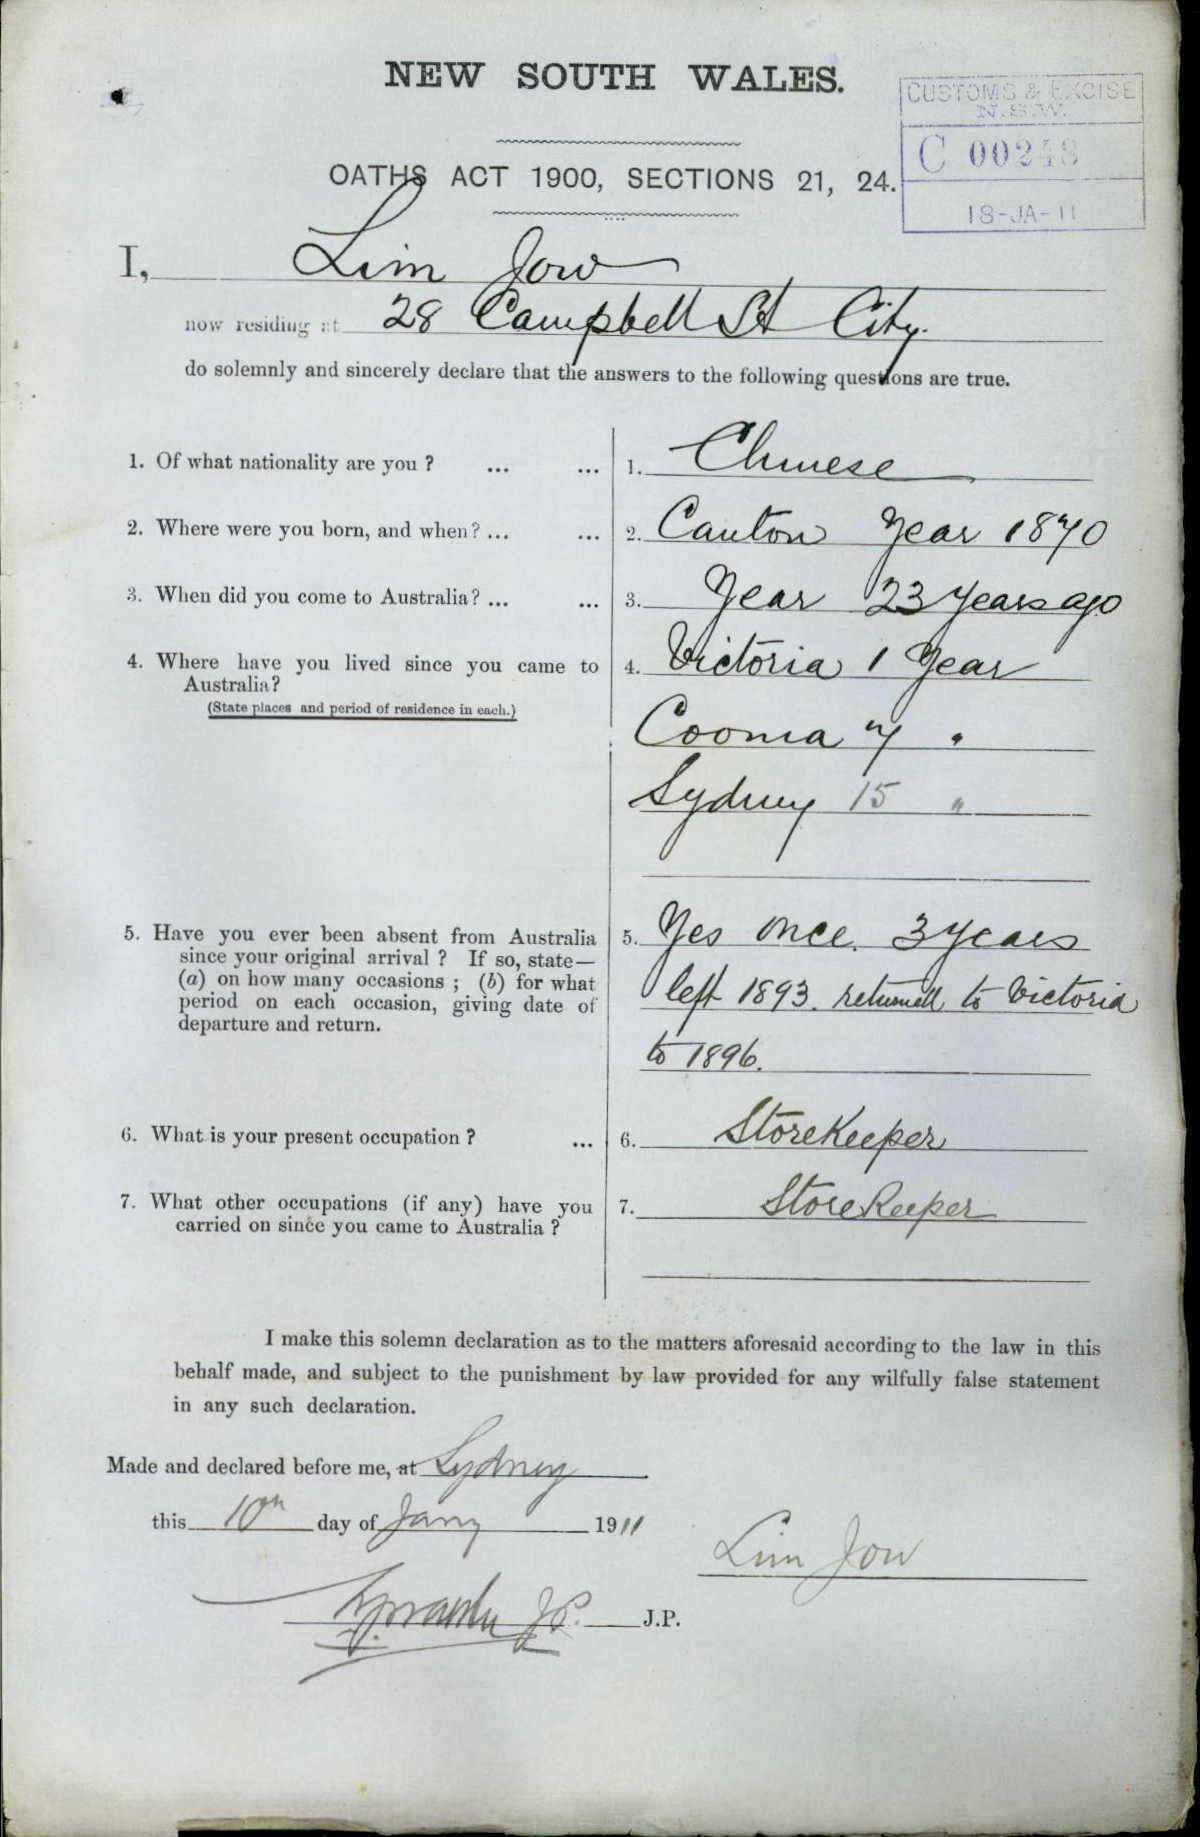 NEW SOUTH WALES.
CUSTOMS & EXCISE
N.S.W.
C 00248
18-JA-11
OATHS ACT 1900, SECTIONS 21, 24.
I, Lim Jow
now residing at 28 Campbell St City.
do solemnly and sincerely declare that the answers to the following questions are true.
1. Of what nationality are you ? ... ... 1. Chinese
2. Where were you born, and when? ... ... 2. Canton Year 1870
3. When did you come to Australia? ... ... 3. Year 23 years ago
4. Where have you lived since you came to 4. Victoria 1 Year
Australia?
(State places and period of residence in each.)
Cooma 7 "
Sydney 15 "
5. Have you ever been absent from Australia 5. Yes once. 3 years
since your original arrival ? If so, state—
(a) on how many occasions ; (b) for what left 1893. returned to Victoria
period on each occasion, giving date of
departure and return.
to 1896.
6. What is your present occupation ? ... 6. StoreKeeper
7. What other occupations (if any) have you 7. StoreKeeper
carried on since you came to Australia ?
I make this solemn declaration as to the matters aforesaid according to the law in this
behalf made, and subject to the punishment by law provided for any wilfully false statement
in any such declaration.
Made and declared before me, at Sydney
this 10th day of Jany 1911
Lim Jow
J.P. J.P.